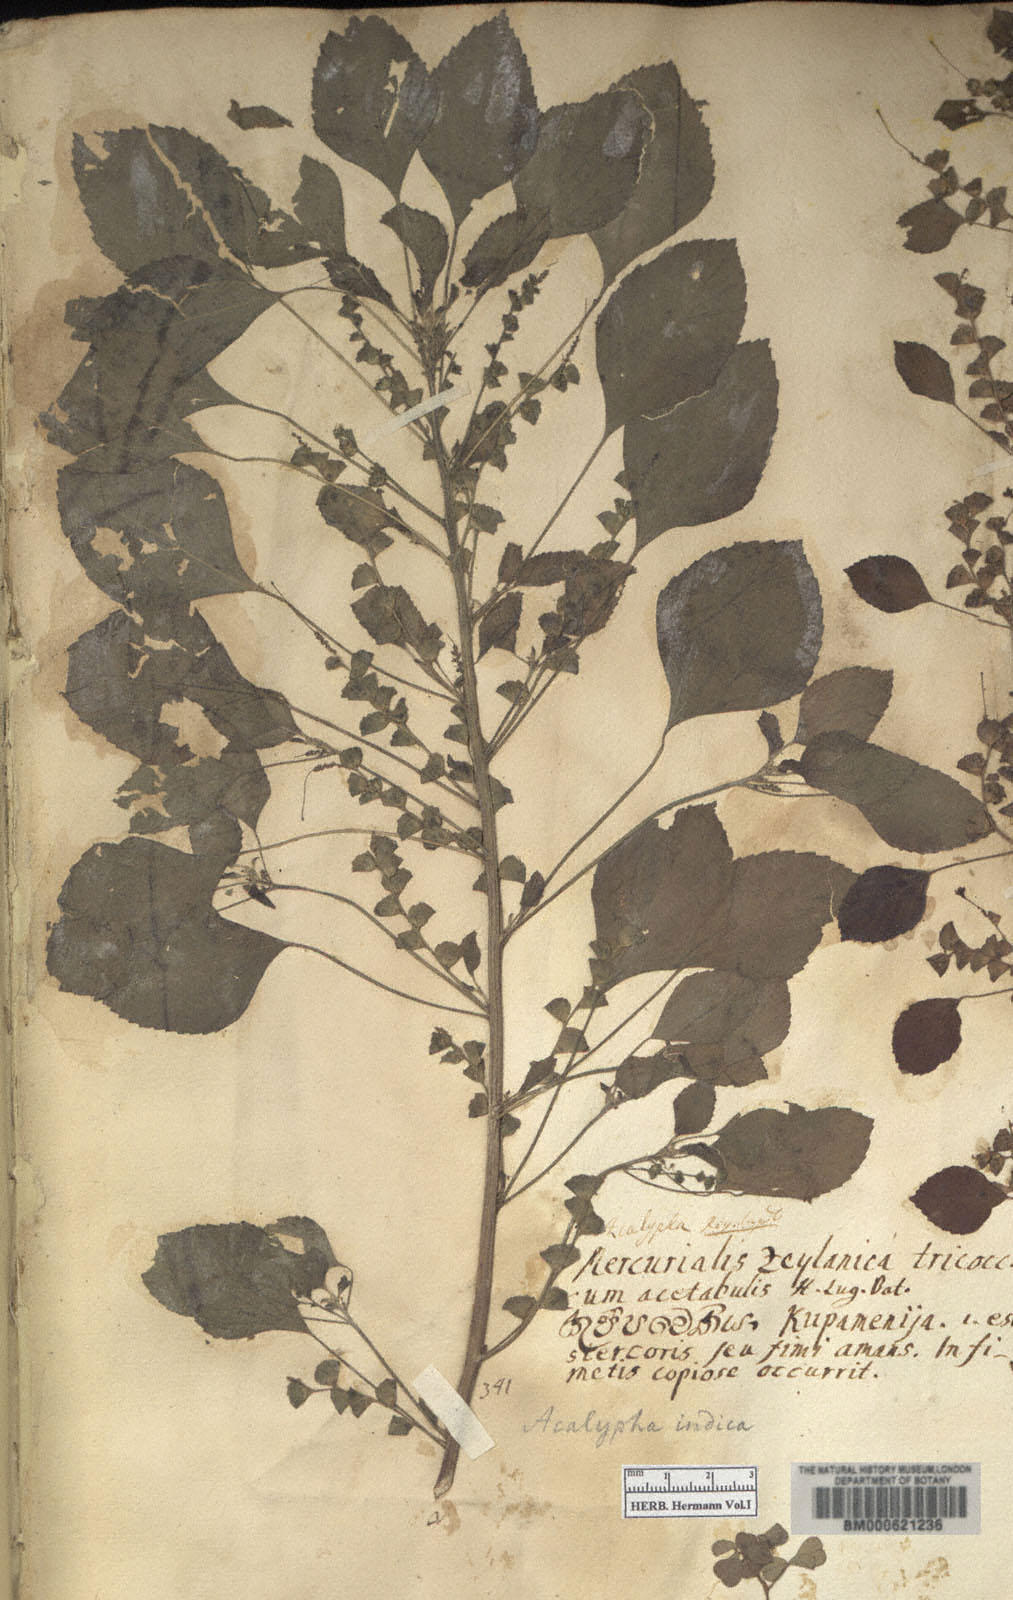 Acalypha
Mercurialis Zeylanica tricocc.
cum acetabulis H. Lug. Bat.
Kupamenija. i. est
stercoris seu fimi amans. In fi-
metis copiose occurrit.
341
Acalypha indica
mm 1 2 3
HERB. Hermann Vol.I
THE NATURAL HISTORY MUSEUM, LONDON
DEPARTMENT OF BOTANY
BM000621236